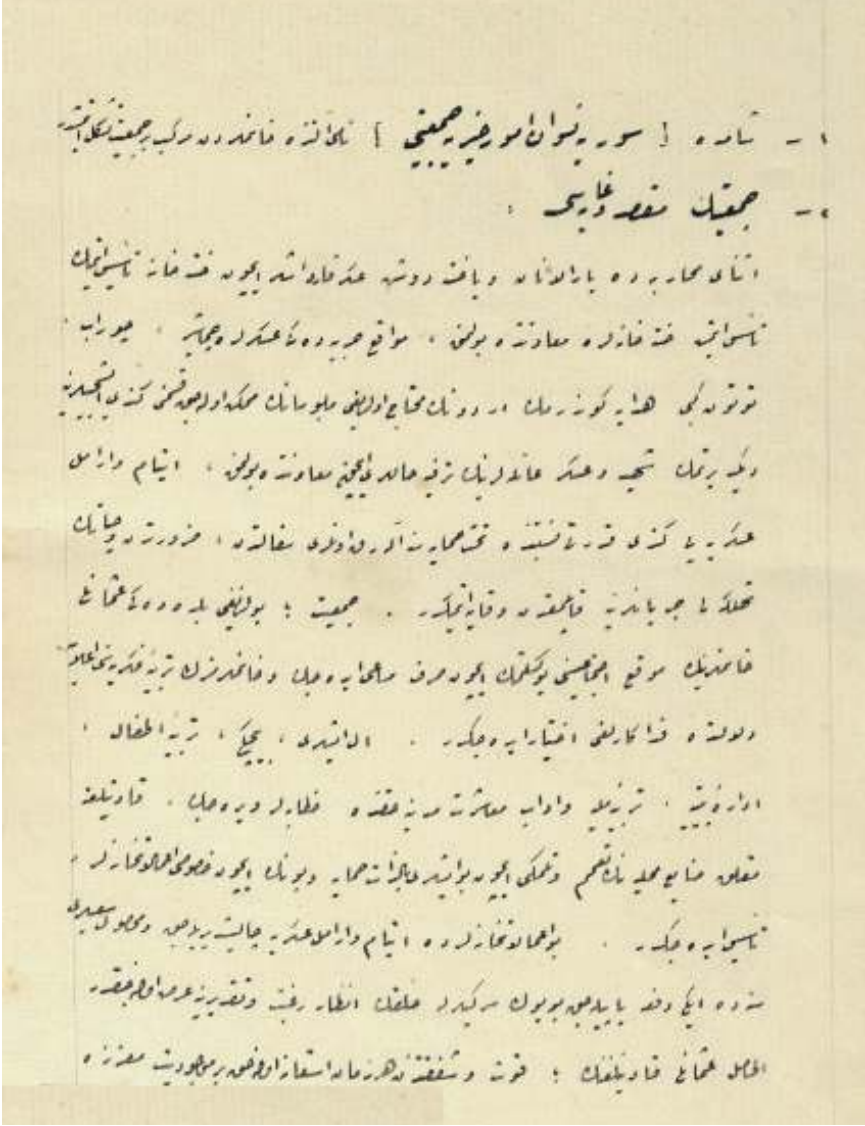 ١ - شامده [ سوريه نسوان امور خيريه جمعيتى ] نامى آلتنده خانملردن مركب بر جمعيت تشكل ايتمشدر
٢ - جمعيتك مقصد و غايه سى :
اثناى محاربه ده يارالانان و ياخسته دوشن عسكر قارداشلر ايچون خسته خانه تأسيس ايتمك
خسته خانه لره معاونتده بولنمق ، مواقع حربيه ده كى عسكرلره چاماشير ، چوراب ،
توتون كبى هدايا كوندرمك اردونك محتاج اولديغى ملبوساتك ممكن اوله بيلن قسمنى كندى
ديكديرتمك شهيد و عسكر عائله لرينك ترفيه حاللرى ايچون معاونتده بولنمق ، ايتام و ارامل
عسكريه يى كندى قدرتى نسبتنده تحت حمايه سنه آله رق اونلرى سفالتدن ، ضرورتدن و حياتك
تهلكه لى جريانلرينه قاپيلمقدن وقايه ايتمكدر . جمعيت ؛ بولنديغى بلده ده كى عثمانلى
خانملرينك موقع اجتماعيسنى يوكسلتمك ايچون صرف مساعى ايده جك و خانملرمزك تربيه فكريه سنى اعلايه
دلالتده فداكارلغى اختيار ايده جكدر . ال ايشلرى ، بيچكى ، تربيه اطفال ،
اداره بيتيه ، تربيه مليه و اداب معاشرت مدنيه حقنده خطابه لر ويره جك ، قادينلغه
متعلق صنايع محليه نك تعميم و ترقيسى ايچون بو ايشلرى بالذات حمايه و بونك ايچون خصوصى اعمالاتخانه لر
تأسيس ايده جكدر . بو اعمالاتخانه لرده ايتام و ارامل عسكريه چاليشديريله جق و محصول سعيلرى
سنه ده ايكى دفعه ياپيله جق بويوك سركيلرله خلقك انظار رغبت و تقديرينه عرض اوله جقدر
الحاصل عثمانلى قادينلغنك ؛ قوت و شفقتندن هر زمان استفاده اولنه جق بر موجوديت معززه